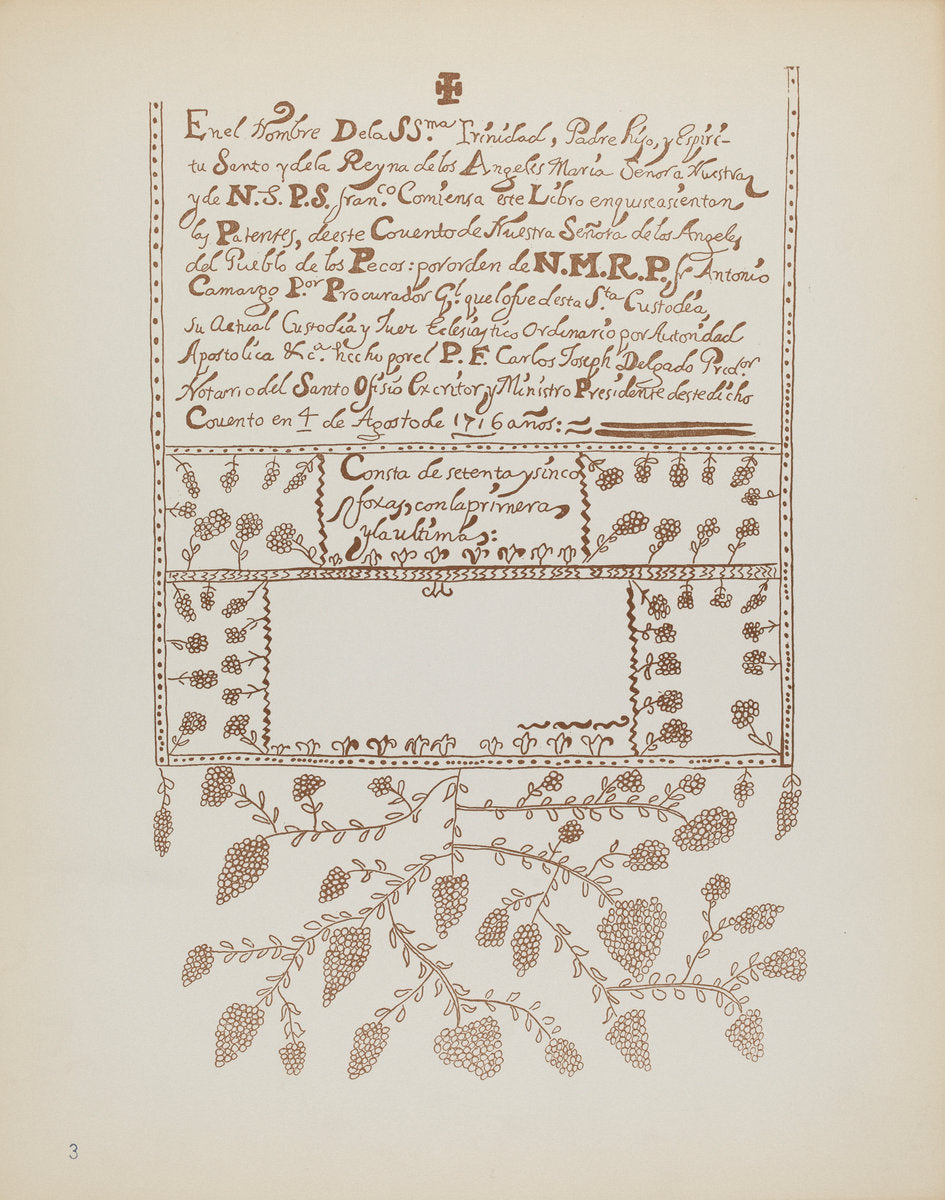 En el Nombre De la SS.ma Trinidad, Padre hijo, y Espiri-
tu Santo y de la Reyna de los Angeles Maria Señora Nuestra
y de N. S. P. S. fran.co Comiensa este Libro en quise asientan
las Patentes, de este Covento de Nuestra Señora de los Angeles
del Pueblo de los Pecos: por orden de N. M. R. P. fr Antonio
Camargo P.or Procurador G.l que lo fue desta S.ta Custodia
Su Actual Custodia y Juez Eclesiastico Ordinario por Autoridad
Apostolica &c.a hecho por el P. F. Carlos Joseph Delgado Pred.or
Notario del Santo Ofisio Excritor y Ministro Presidente deste dicho
Covento en 4 de Agosto de 1716 años:
Consta de setenta y sinco
foxas, con la primera
y la ultima:
3